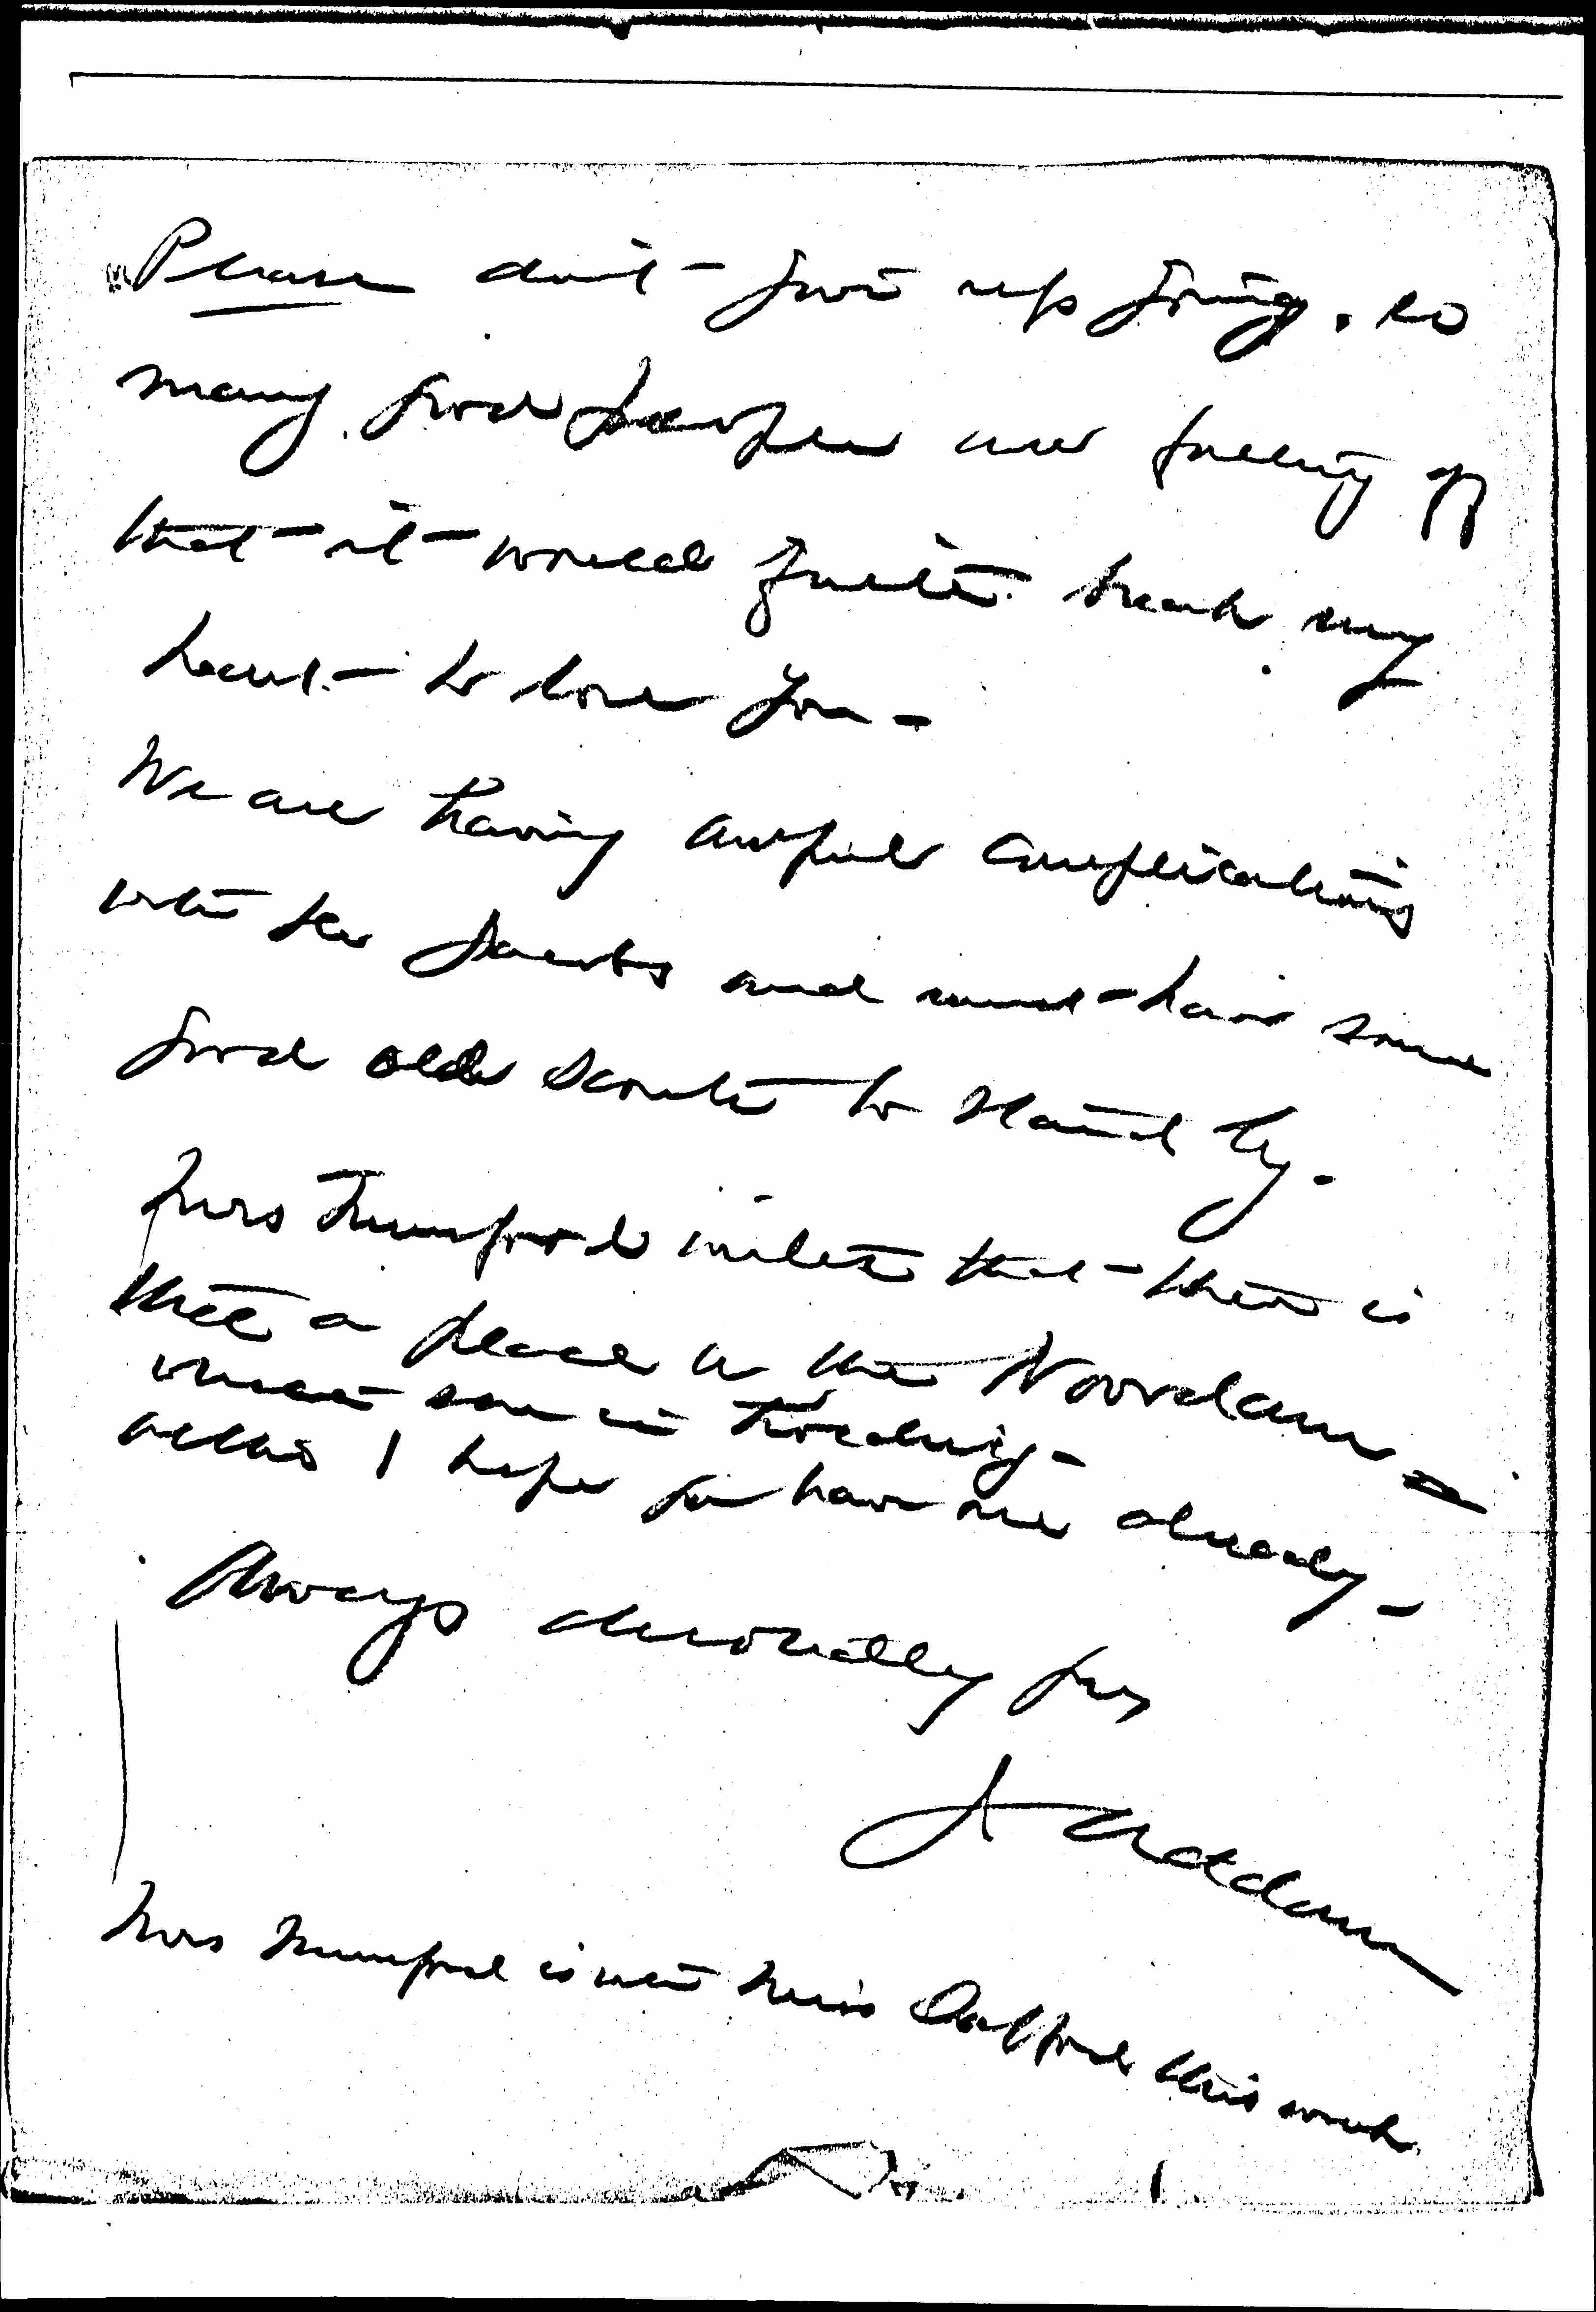 Please don't give up going, so
many good people are falling off
that it would quite break my
heart to lose you -
We are having awful complications
with the and must have some
good old scouts to stand by.
Mrs Mumford writes that there is
still a place in the Noordam -
some one in
altho I hope you have one already -
Always devotedly yrs
J Addams
Mrs Mumford is with Miss this week.